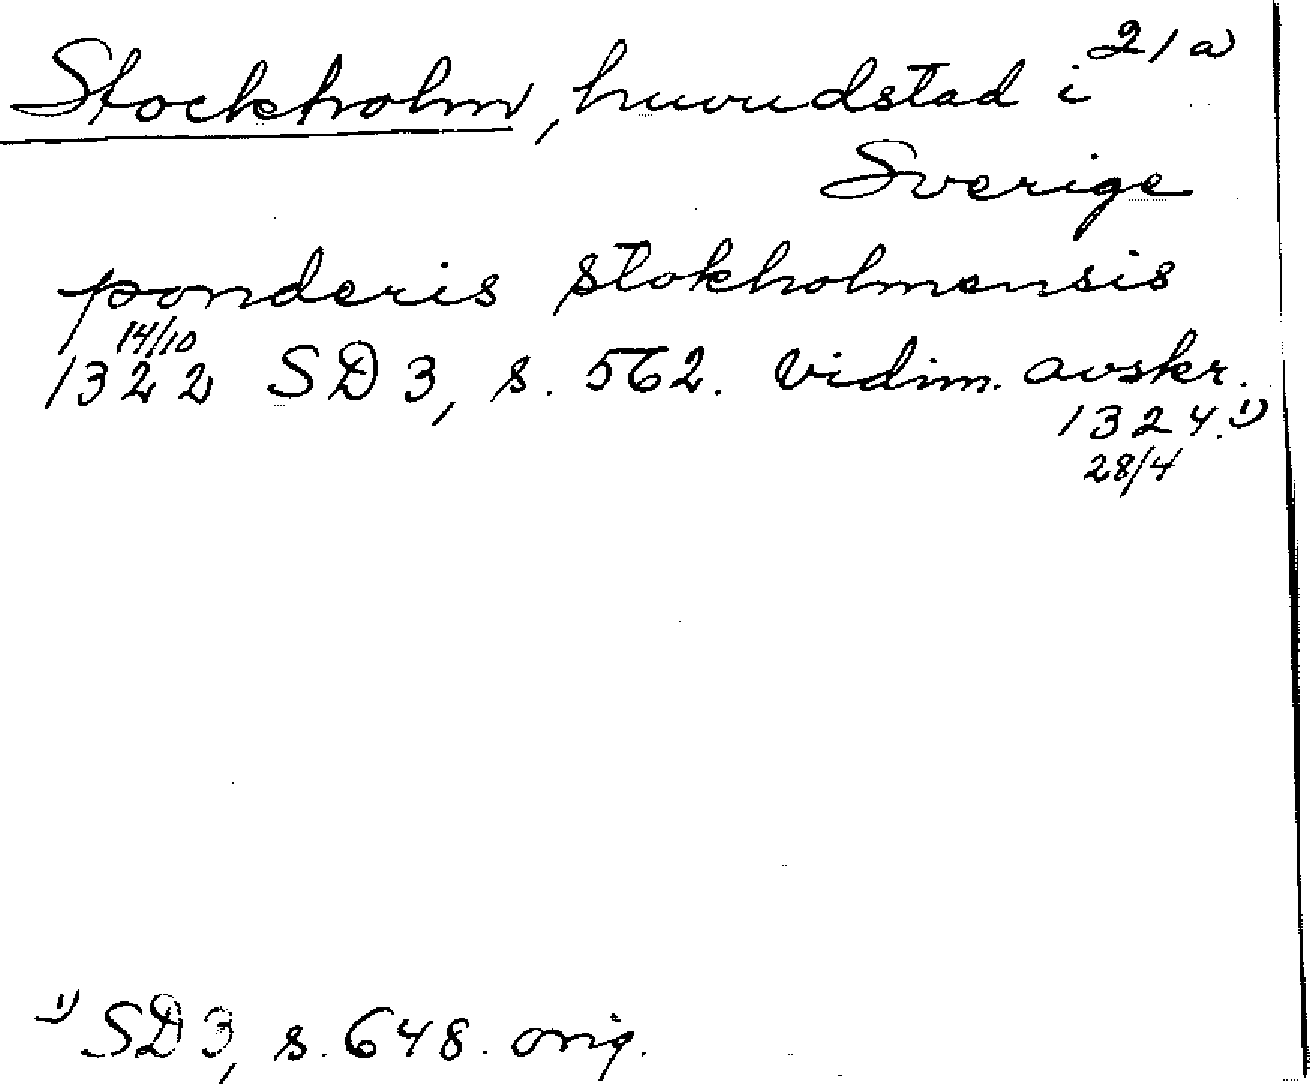 Stockholm, huvudstad i 21a
Sverige
ponderis stokholmensis
14/10
1322 SD 3, s. 562. vidim. avskr.
1324.¹⁾
28/4
¹⁾ SD 3, s. 648. orig.